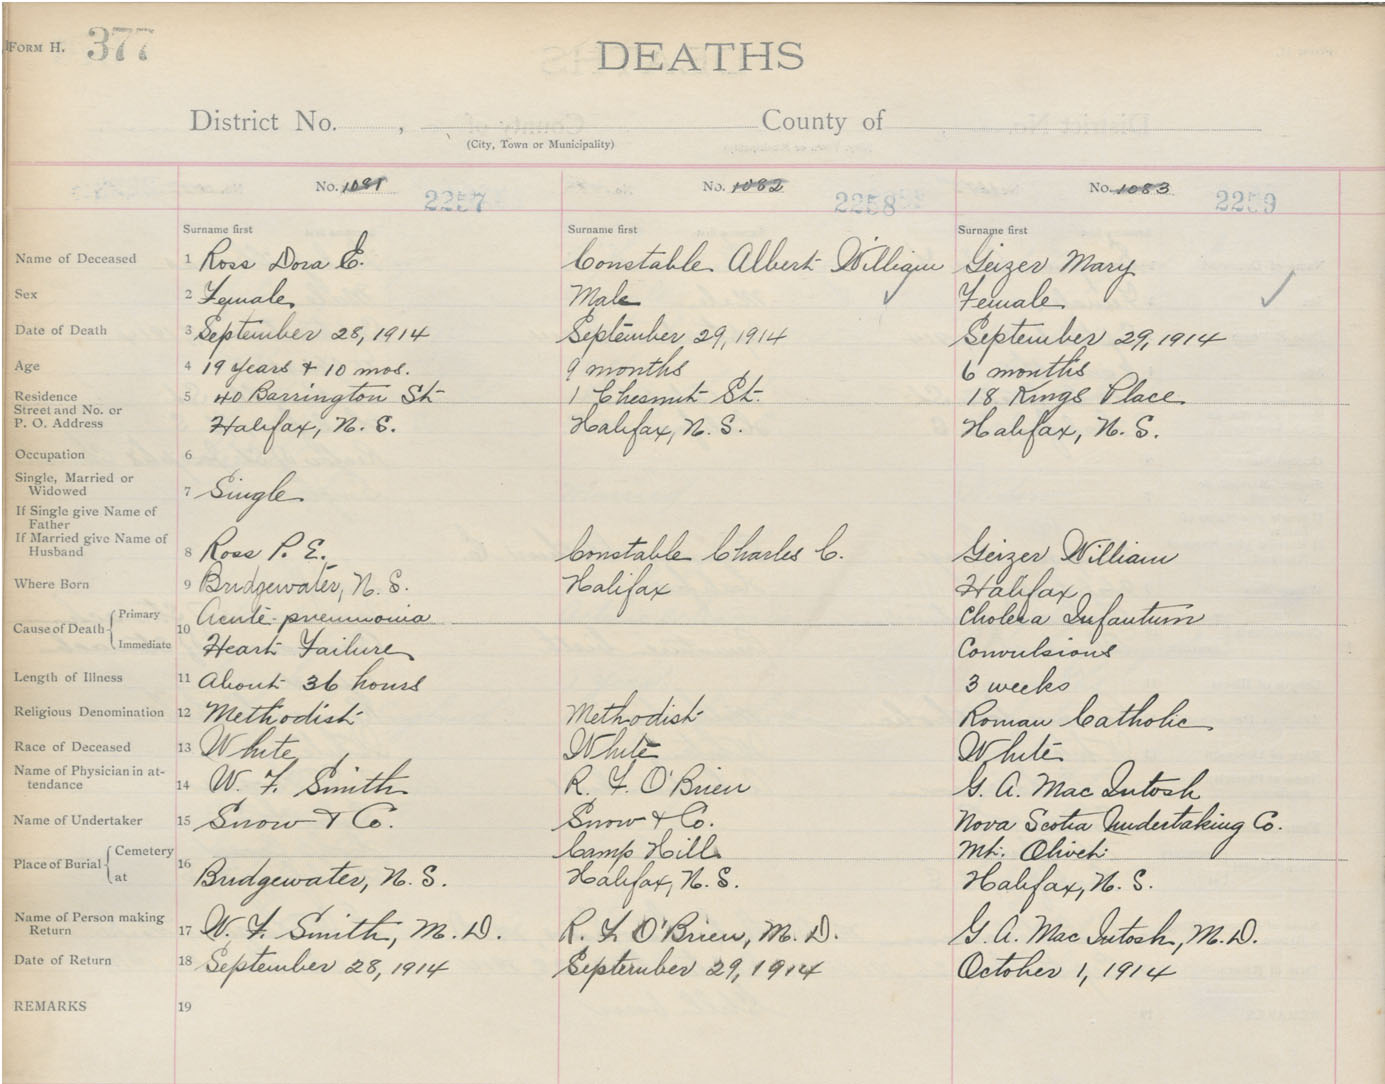 FORM H. 377
DEATHS
District No. , County of
(City, Town or Municipality)
No. 1081 2257 No. 1082 2258 No. 1083 2259
Surname first Surname first Surname first
Name of Deceased 1 Ross Dora E. Constable Albert William Geizer Mary
Sex 2 Female Male Female
Date of Death 3 September 28, 1914 September 29, 1914 September 29, 1914
Age 4 19 years + 10 mos. 9 months 6 months
Residence 5 40 Barrington St 1 Chesnut St. 18 Kings Place
Street and No. or
P. O. Address Halifax, N. S. Halifax, N. S. Halifax, N. S.
Occupation 6
Single, Married or
Widowed 7 Single
If Single give Name of
Father
If Married give Name of
Husband 8 Ross P. E. Constable Charles C. Geizer William
Where Born 9 Bridgewater, N. S. Halifax Halifax
Cause of Death Primary 10 Acute pneumonia Cholera Infantum
Immediate Heart Failure Convulsions
Length of Illness 11 About 36 hours 3 weeks
Religious Denomination 12 Methodist Methodist Roman Catholic
Race of Deceased 13 White White White
Name of Physician in at-
tendance 14 W. F. Smith R. F. O'Brien G. A. Mac Intosh
Name of Undertaker 15 Snow & Co. Snow & Co. Nova Scotia Undertaking Co.
Place of Burial Cemetery 16 Camp Hill Mt. Olivet
at Bridgewater, N. S. Halifax, N. S. Halifax, N. S.
Name of Person making
Return 17 W. F. Smith, M. D. R. F. O'Brien, M. D. G. A. Mac Intosh, M. D.
Date of Return 18 September 28, 1914 September 29, 1914 October 1, 1914
REMARKS 19